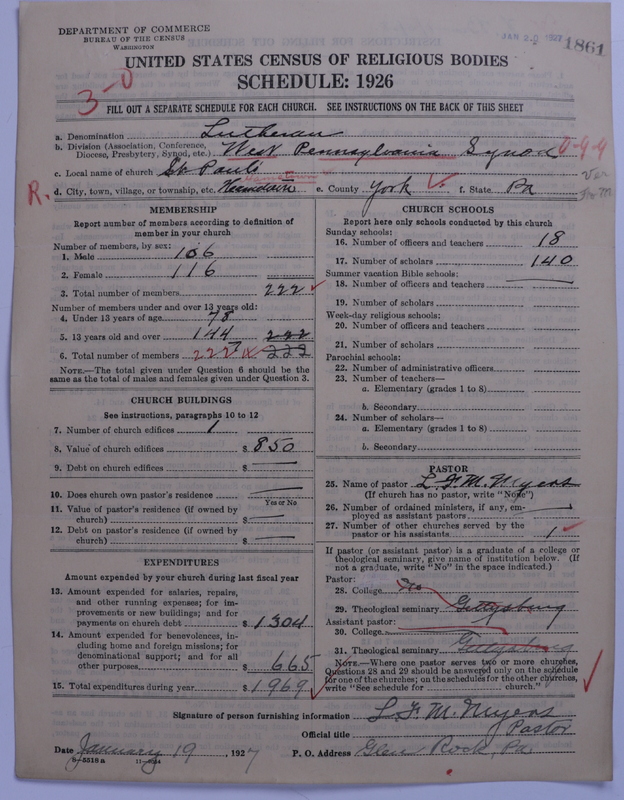 DEPARTMENT OF COMMERCE
BUREAU OF THE CENSUS
WASHINGTON
JAN 20 1927
1861
UNITED STATES CENSUS OF RELIGIOUS BODIES
SCHEDULE: 1926
3-0
FILL OUT A SEPARATE SCHEDULE FOR EACH CHURCH. SEE INSTRUCTIONS ON THE BACK OF THIS SHEET
a. Denomination Lutheran
b. Division (Association, Conference, Diocese, Presbytery, Synod, etc.) West Pennsylvania Synod
c. Local name of church St Pauls
R. d. City, town, village, or township, etc. e. County York f. State Pa
MEMBERSHIP
Report number of members according to definition of
member in your church
Number of members, by sex:
1. Male 106
2. Female 116
3. Total number of members 222
Number of members under and over 13 years old:
4. Under 13 years of age 78
5. 13 years old and over 144 222
6. Total number of members 222 222
NOTE.—The total given under Question 6 should be
same as the total of males and females given under Question 3.
CHURCH BUILDINGS
See instructions, paragraphs 10 to 12
7. Number of church edifices 1
8. Value of church edifices $ 850
9. Debt on church edifices $
10. Does church own pastor's residence
Yes or No
11. Value of pastor's residence (if owned by
church) $
12. Debt on pastor's residence (if owned by
church) $
EXPENDITURES
Amount expended by your church during last fiscal year
13. Amount expended for salaries, repairs,
and other running expenses; for im-
provements or new buildings; and for
payments on church debt $ 1304
14. Amount expended for benevolences, in-
cluding home and foreign missions; for
denominational support; and for all
other purposes $ 665
15. Total expenditures during year $ 1969
CHURCH SCHOOLS
Report here only schools conducted by this church
Sunday schools:
16. Number of officers and teachers 18
17. Number of scholars 140
Summer vacation Bible schools:
18. Number of officers and teachers
19. Number of scholars
Week-day religious schools:
20. Number of officers and teachers
21. Number of scholars
Parochial schools:
22. Number of administrative officers
23. Number of teachers—
a. Elementary (grades 1 to 8)
b. Secondary
24. Number of scholars—
a. Elementary (grades 1 to 8)
b. Secondary
PASTOR
25. Name of pastor L. F. M. Myers
(If church has no pastor, write "None")
26. Number of ordained ministers, if any, em-
ployed as assistant pastors
27. Number of other churches served by the
pastor or his assistants 1
If pastor (or assistant pastor) is a graduate of a college or
theological seminary, give name of institution below. (If
not a graduate, write "No" in the space indicated.)
Pastor:
28. College No
29. Theological seminary Gettysburg
Assistant pastor:
30. College
31. Theological seminary Gettysburg
NOTE.—Where one pastor serves two or more churches,
Questions 28 and 29 should be answered only on the schedule
for one of the churches; on the schedules for the other churches,
write "See schedule for church."
Signature of person furnishing information L. F. M. Myers
Official title Pastor
Date January 19, 1927 P. O. Address Glen Rock, Pa.
8-5518 a 11-9024